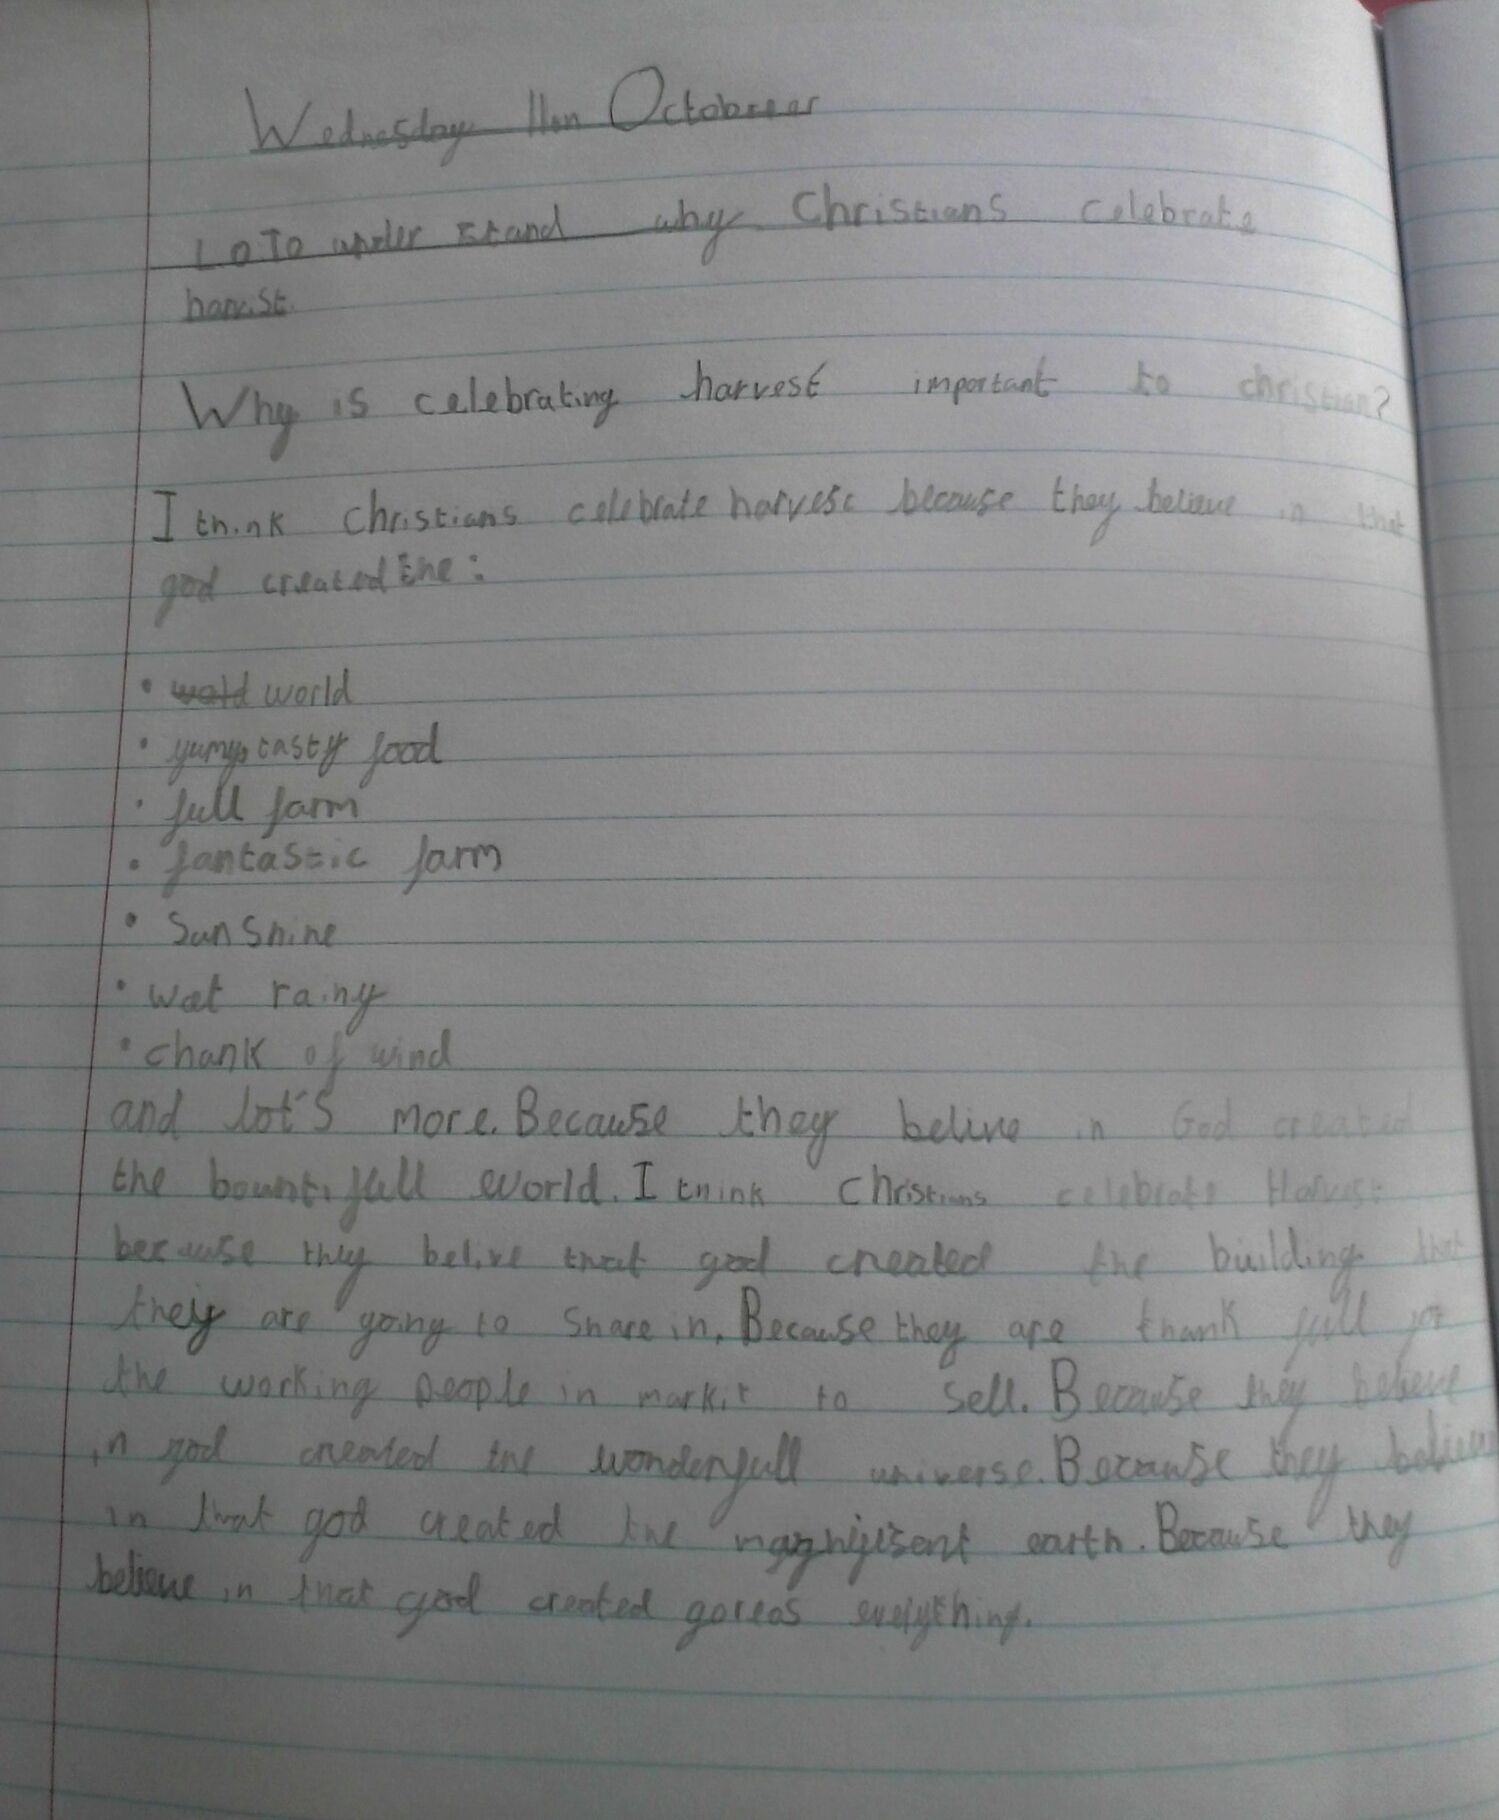 Wednesday 11th Octobreer
L.O To under stand why Christians celebrate
harvist.
Why is celebrating harvest important to christian?
I think Christians celebrate harvest because they believe in that
god created the:
• wold world
• yumy, tasty food
• full farm
• fantastic farm
• Sun Shine
• wet rainy
• chank of wind
and lot's more. Because they belive in God created
the bountifull world. I think Christians celebrate Harvest
because they belive that god created the building that
they are going to share in. Because they are thank full for
the working people in markit to sell. Because they believe
in god created the wonderfull universe. Because they believe
in that god created the magnifisent earth. Because they
believe in that god created goreas everything.